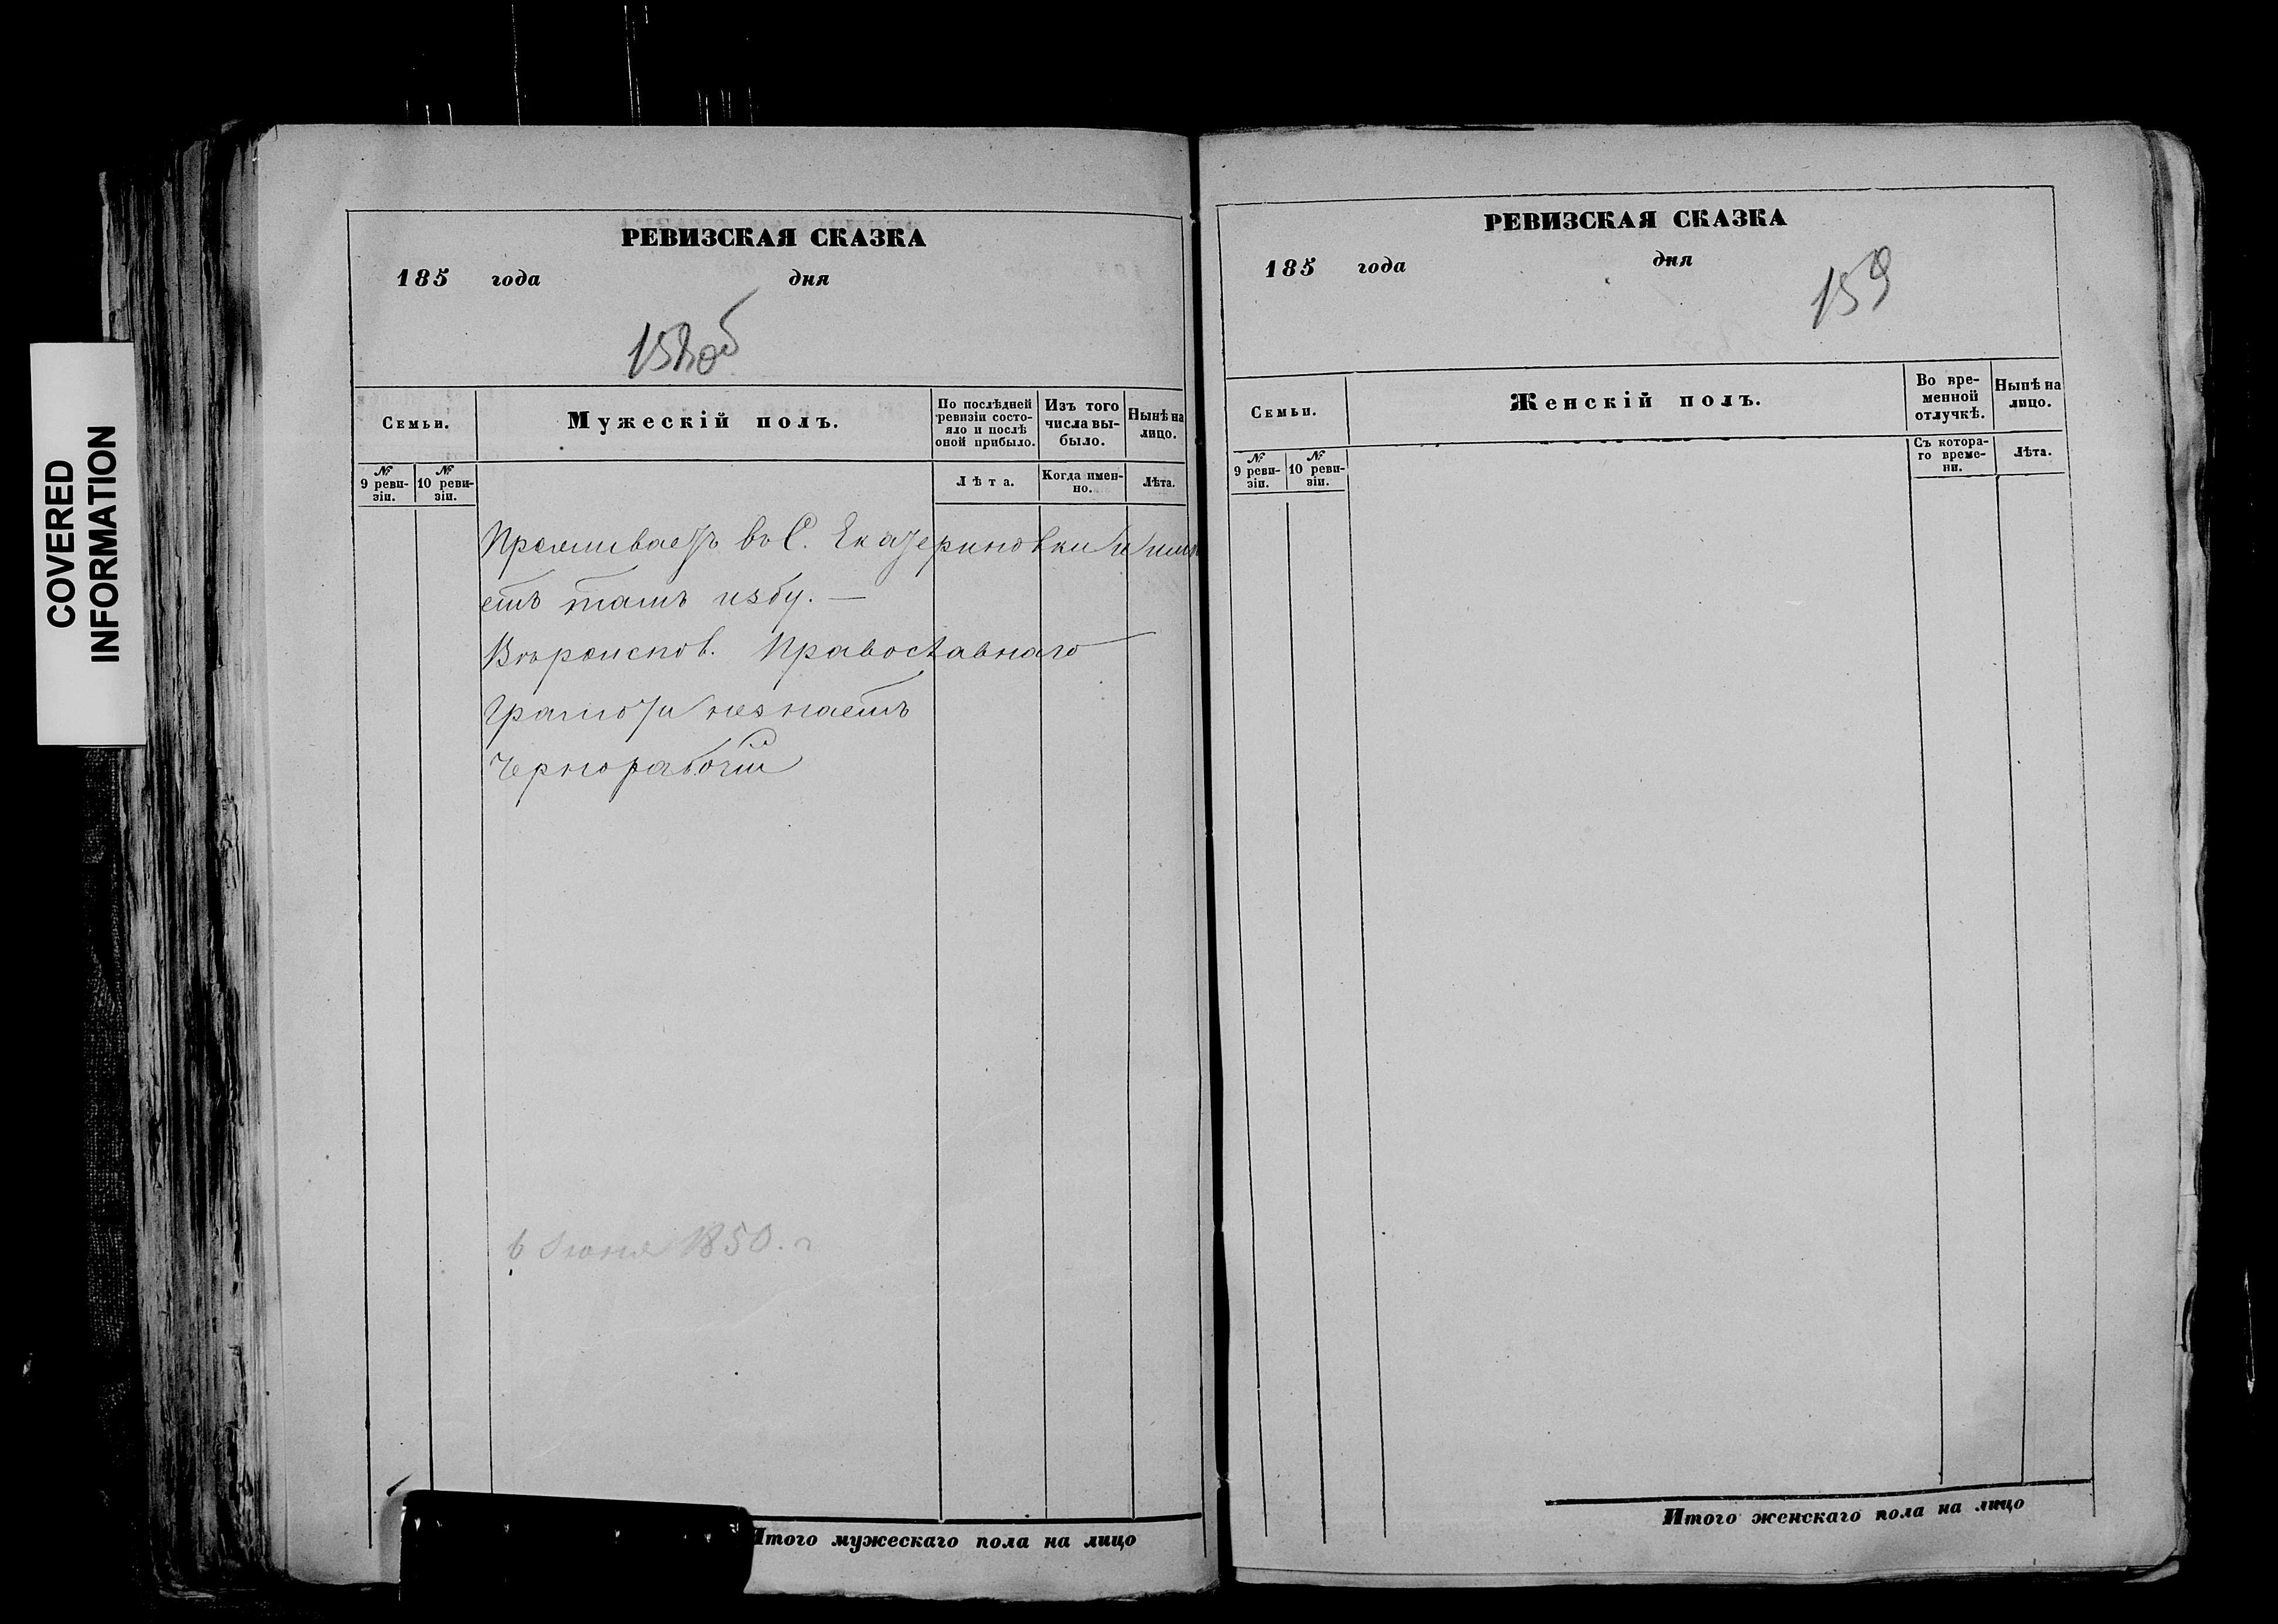 COVERED
INFORMATION
РЕВИЗСКАЯ СКАЗКА
185 года дня
158об
Семьи.
Мужескій полъ.
По послѣдней
ревизіи состо-
яло и послѣ
оной прибыло.
Изъ того
числа вы-
было.
Нынѣ на
лицо.
№
9 реви-
зіи.
№
10 реви-
зіи.
Лѣта.
Когда имен-
но.
Лѣта.
Проживаетъ въ С. Екатериновки и имѣ
етъ тамъ избу. —
Вѣроиспов. Православнаго
Грамоти незнаетъ
Чернорабочій
6 Июня 1850. г
Итого мужескаго пола на лицо
РЕВИЗСКАЯ СКАЗКА
185 года дня
159
Семьи.
Женскій полъ.
Во вре-
менной
отлучкѣ.
Нынѣ на
лицо.
№
9 реви-
зіи.
№
10 реви-
зіи.
Съ котора-
го време-
ни.
Лѣта.
Итого женскаго пола на лицо